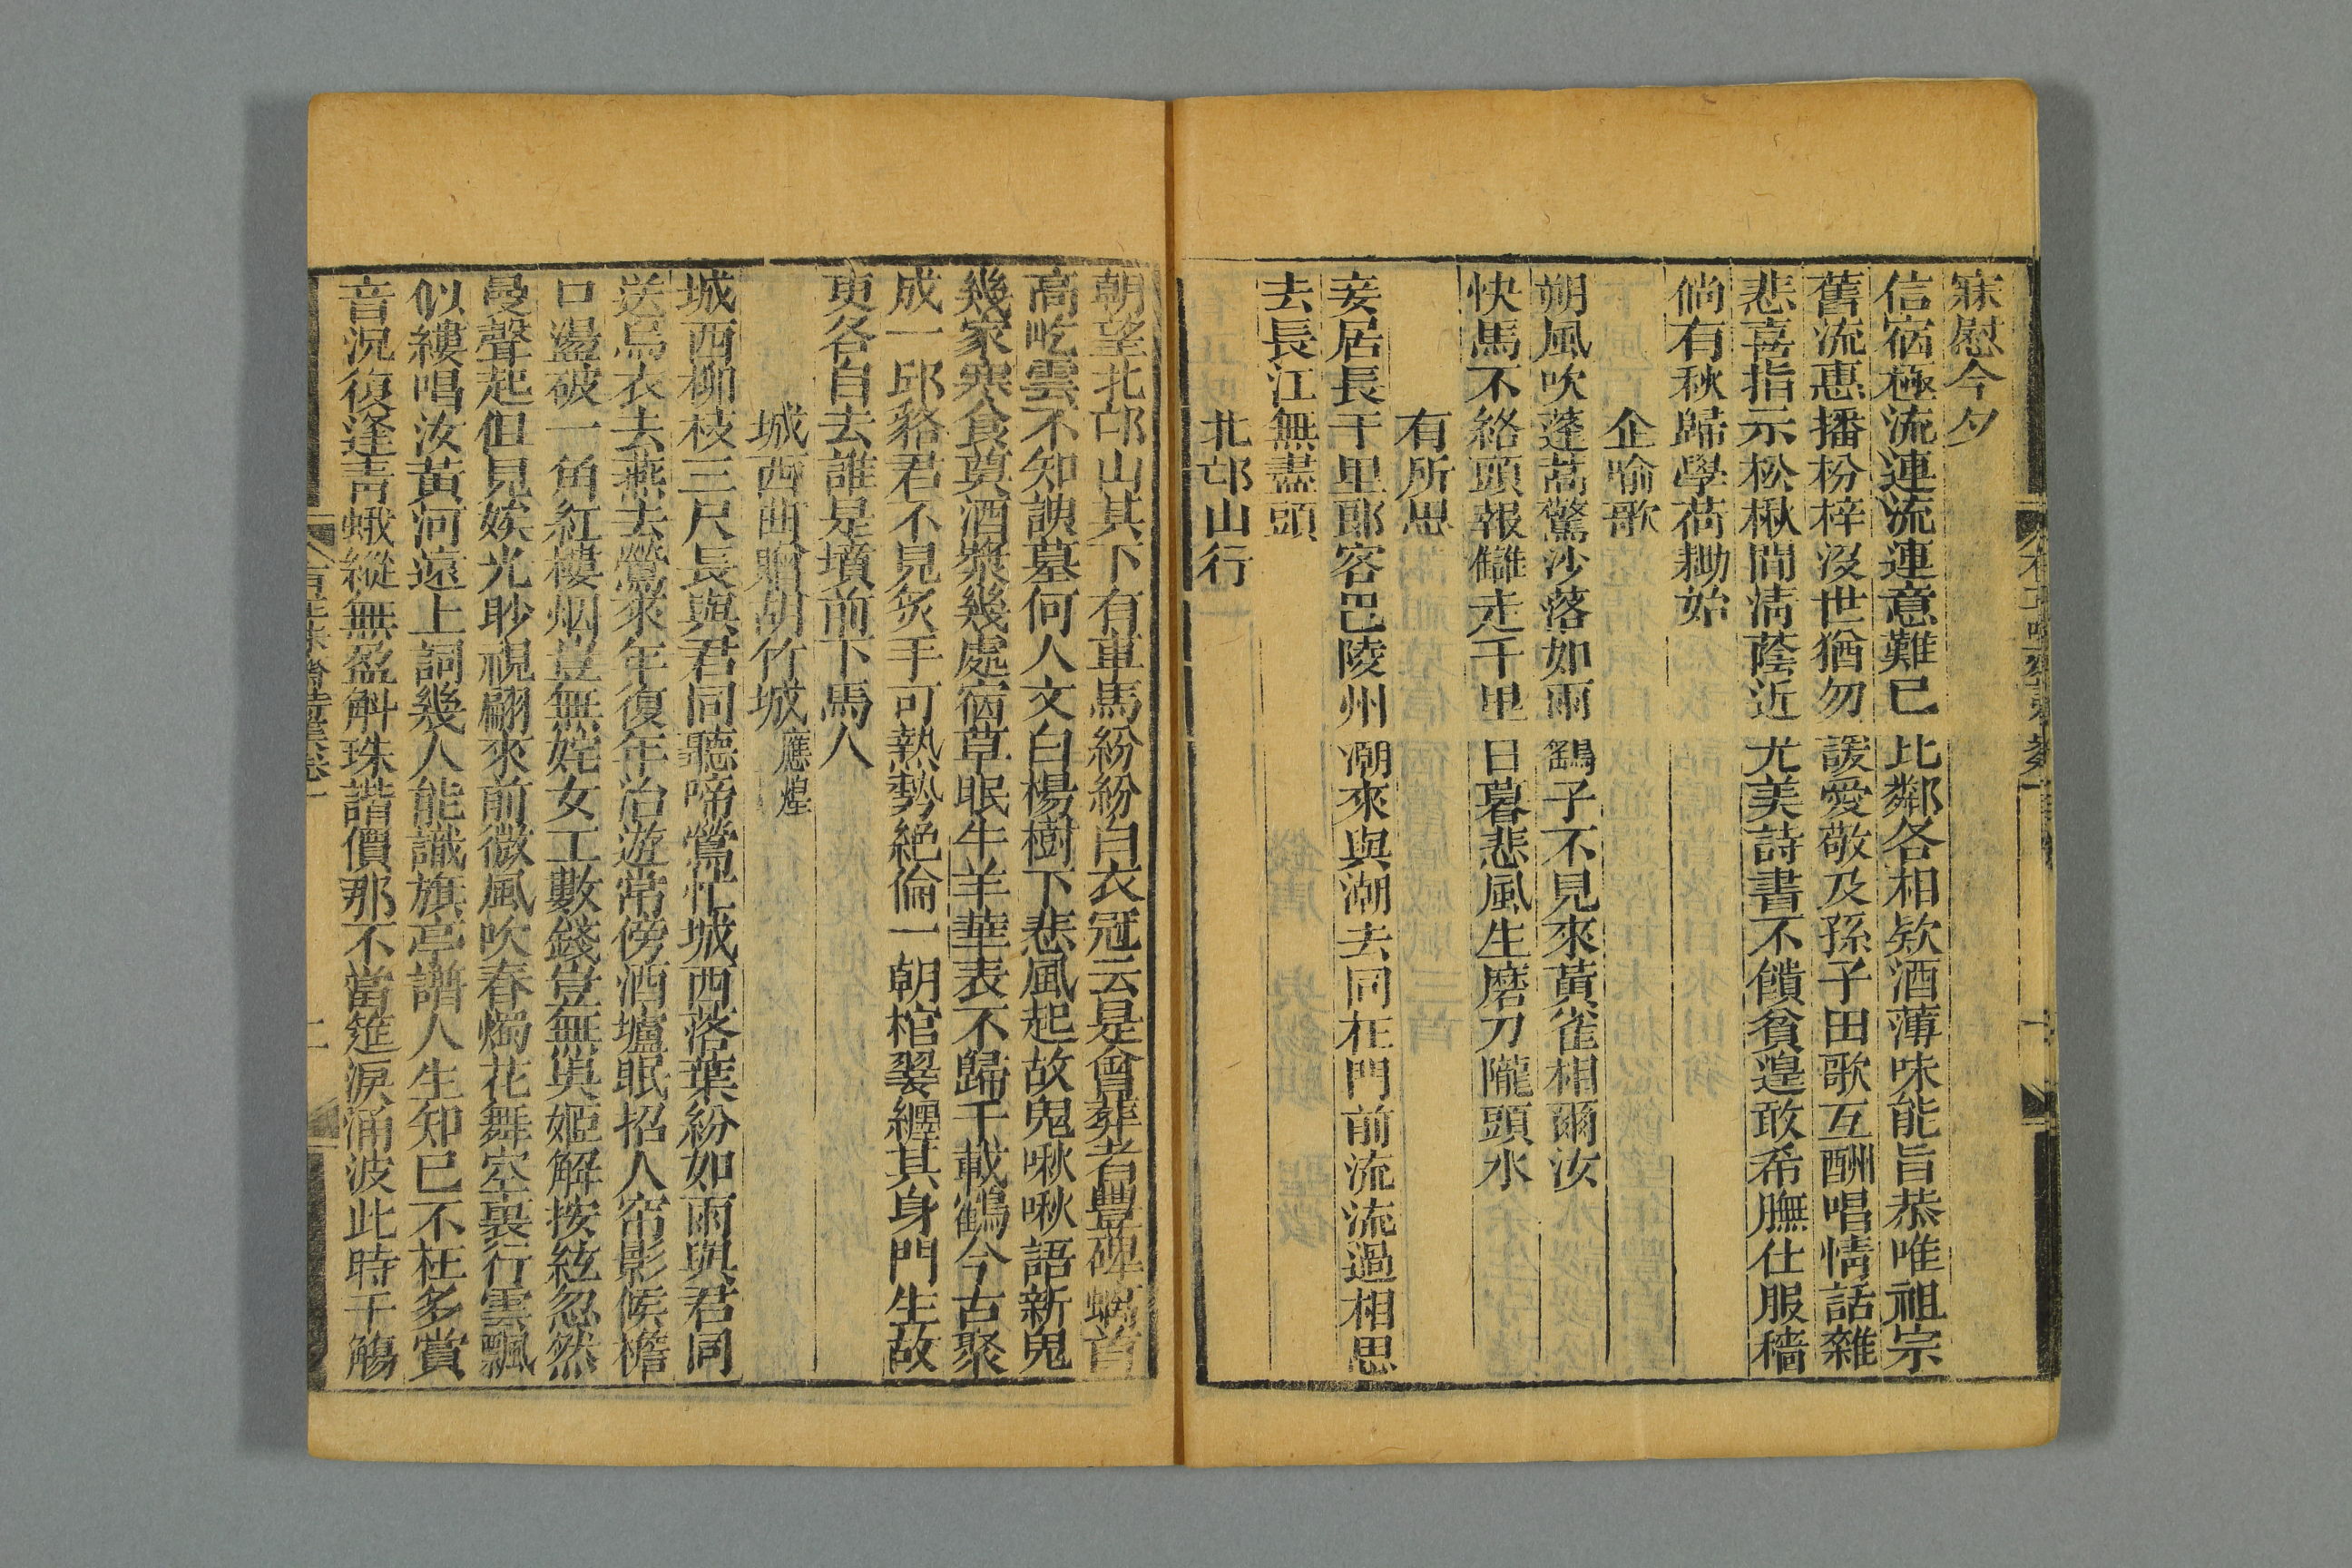 寐慰今夕
信宿極流連流連意難已 比鄰各相欵酒薄味能旨恭唯祖宗
舊流惠播枌梓沒世猶勿諼愛敬及孫子田歌互酬唱情話雜
悲喜指示松楸間清蔭近 尤美詩書不饋貧遑敢希膴仕服穡
倘有秋歸學荷耡始
企喻歌
朔風吹蓬蒿驚沙落如雨 鷂子不見來黃雀相爾汝
快馬不絡頭報讎走千里 日暮悲風生磨刀隴頭水
有所思
妾居長干里郎客巴陵州 潮來與潮去同在門前流流過相思
去長江無盡頭
北邙山行
朝望北邙山其下有車馬紛紛白衣冠云是會葬者豐碑螭首
高屹雲不知諛墓何人文白楊樹下悲風起故鬼啾啾語新鬼
幾家寒食奠酒漿幾處宿草眠牛羊華表不歸千載鶴今古聚
成一邱貉君不見炙手可熱勢絕倫一朝棺翣纏其身門生故
吏各自去誰是墳前下馬人
城西曲贈胡竹城應煌
城西柳枝三尺長與君同聽啼鶯忙城西落葉紛如雨與君同
送烏衣去燕去鶯來年復年冶遊常傍酒壚眠招人帘影候檐
口盪破一角紅樓烟豈無姹女工數錢豈無吳姬解按絃忽然
曼聲起但見娭光眇視翩來前微風吹春燭花舞空裏行雲飄
似縷唱汝黃河遠上詞幾人能識旗亭譜人生知已不枉多賞
音況復逢青蛾縱無盈斛珠諧價那不當筵淚涌波此時千觴